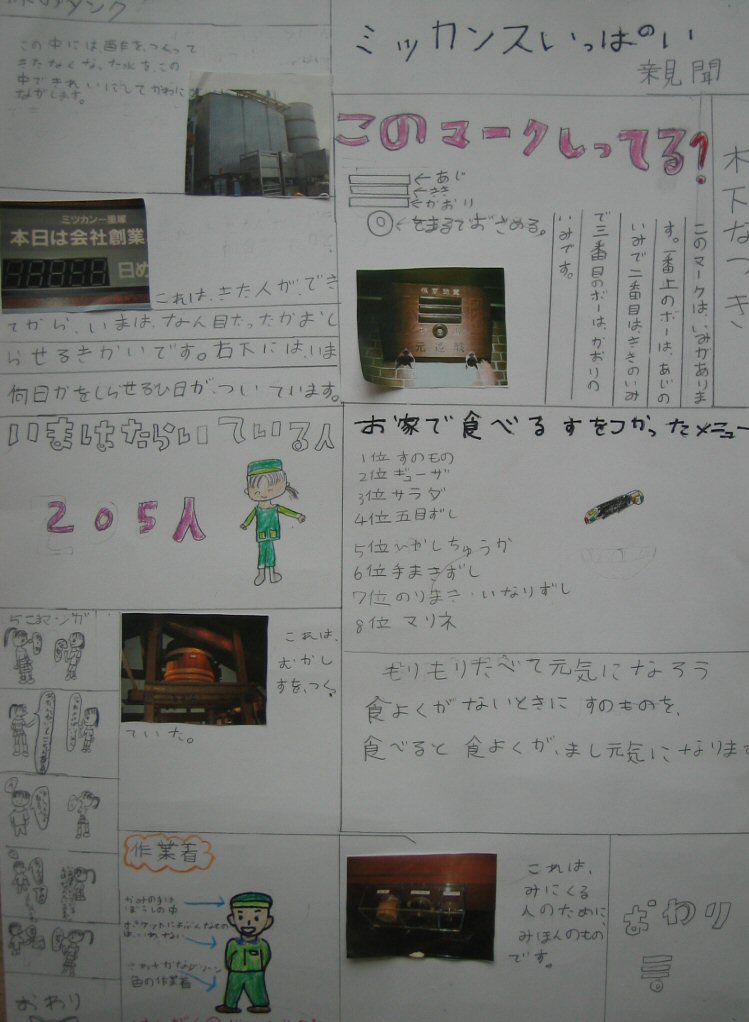 ミッカンスいっぱのい
新聞
木下なつき
このマークしってる?
←あじ
←きき
←かおり
←をまるでおさめる。
このマークは、いみがありま
す。一番上のボーは、あじの
いみで二番目は、ききのいみ
で三番目のボーは、かおりの
いみです。
タンク
この中には、酉乍をつくって
きたなくなった水を、この
中できれいにしてかわに
ながします。
ミツカン一里塚
本日は会社創業
日め
これは、きた人が、でき
てから、いまは、なん日たったかおし
らせるきかいです。右下には、いま
何日かをしらせるひ日が、ついています。
いまはたらいている人
205人
お家で食べるすをつかったメニュー
1位 すのもの
2位 ギョーザ
3位 サラダ
4位 五目ずし
5位 ひやしちゅうか
6位 手まきずし
7位 のりまき・いなりずし
8位 マリネ
もりもりたべて元気になろう
食よくがないときに すのものを、
食べると 食よくが、まし元気になります
5こまマンガ
おわり
これは、
むかし
すを、つくっ
ていた。
作業着
かみのけは
ぼうしの中
ポケットにはよぶんなもの
は、いれない
色の作業着
これは、
みにくる
人のために、
みほんのもの
です。
おわり